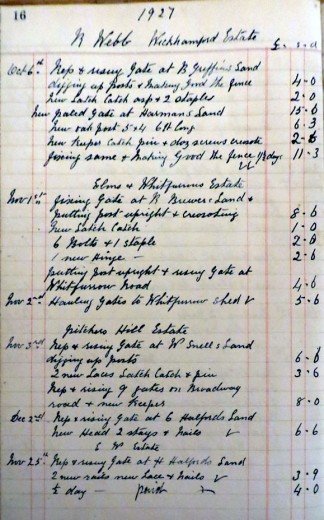 16 1927
N Webb Wickhamford Estate
£. s. d
Oct 6th Rep & rising Gate at B Griffins Land
digging up posts & Making Good the fence 4-0
New Latch Catch & 2 staples 2-0
New paled Gate at Harmans Land 15-6
New oak post 5x4 6ft long 6-3
New Keeper Catch pin & doz screws creosote 2-6
fixing same & Making Good the fence 1½ days 11-3
Elms & Whitfurrows Estate
Nov 1st fixing Gate at R Brewer Land &
putting post upright & creosoting 8-6
New Latch Catch 1-0
6 Bolts & 1 staple 2-0
1 new Hinge 2-6
putting post upright & rising Gate at
Whitfurrow Road 4-6
Nov 2nd Hauling Gates to Whitfurrow Shed 5-6
Pitchers Hill Estate
Nov 3rd Rep & rising Gate at W Snells Land
digging up posts 6-6
2 new Laces Latch Catch & pin 3-6
Rep & rising 9 gates on Broadway
road & new Keepers 8-0
Dec 2nd Rep & rising Gate at C Halfords Land
New Head 2 stays & Nails 6-6
Estate
Nov 25th Rep & rising Gate at H Halfords Land
2 new rails new Lace & Nails 3-9
½ day 4-0